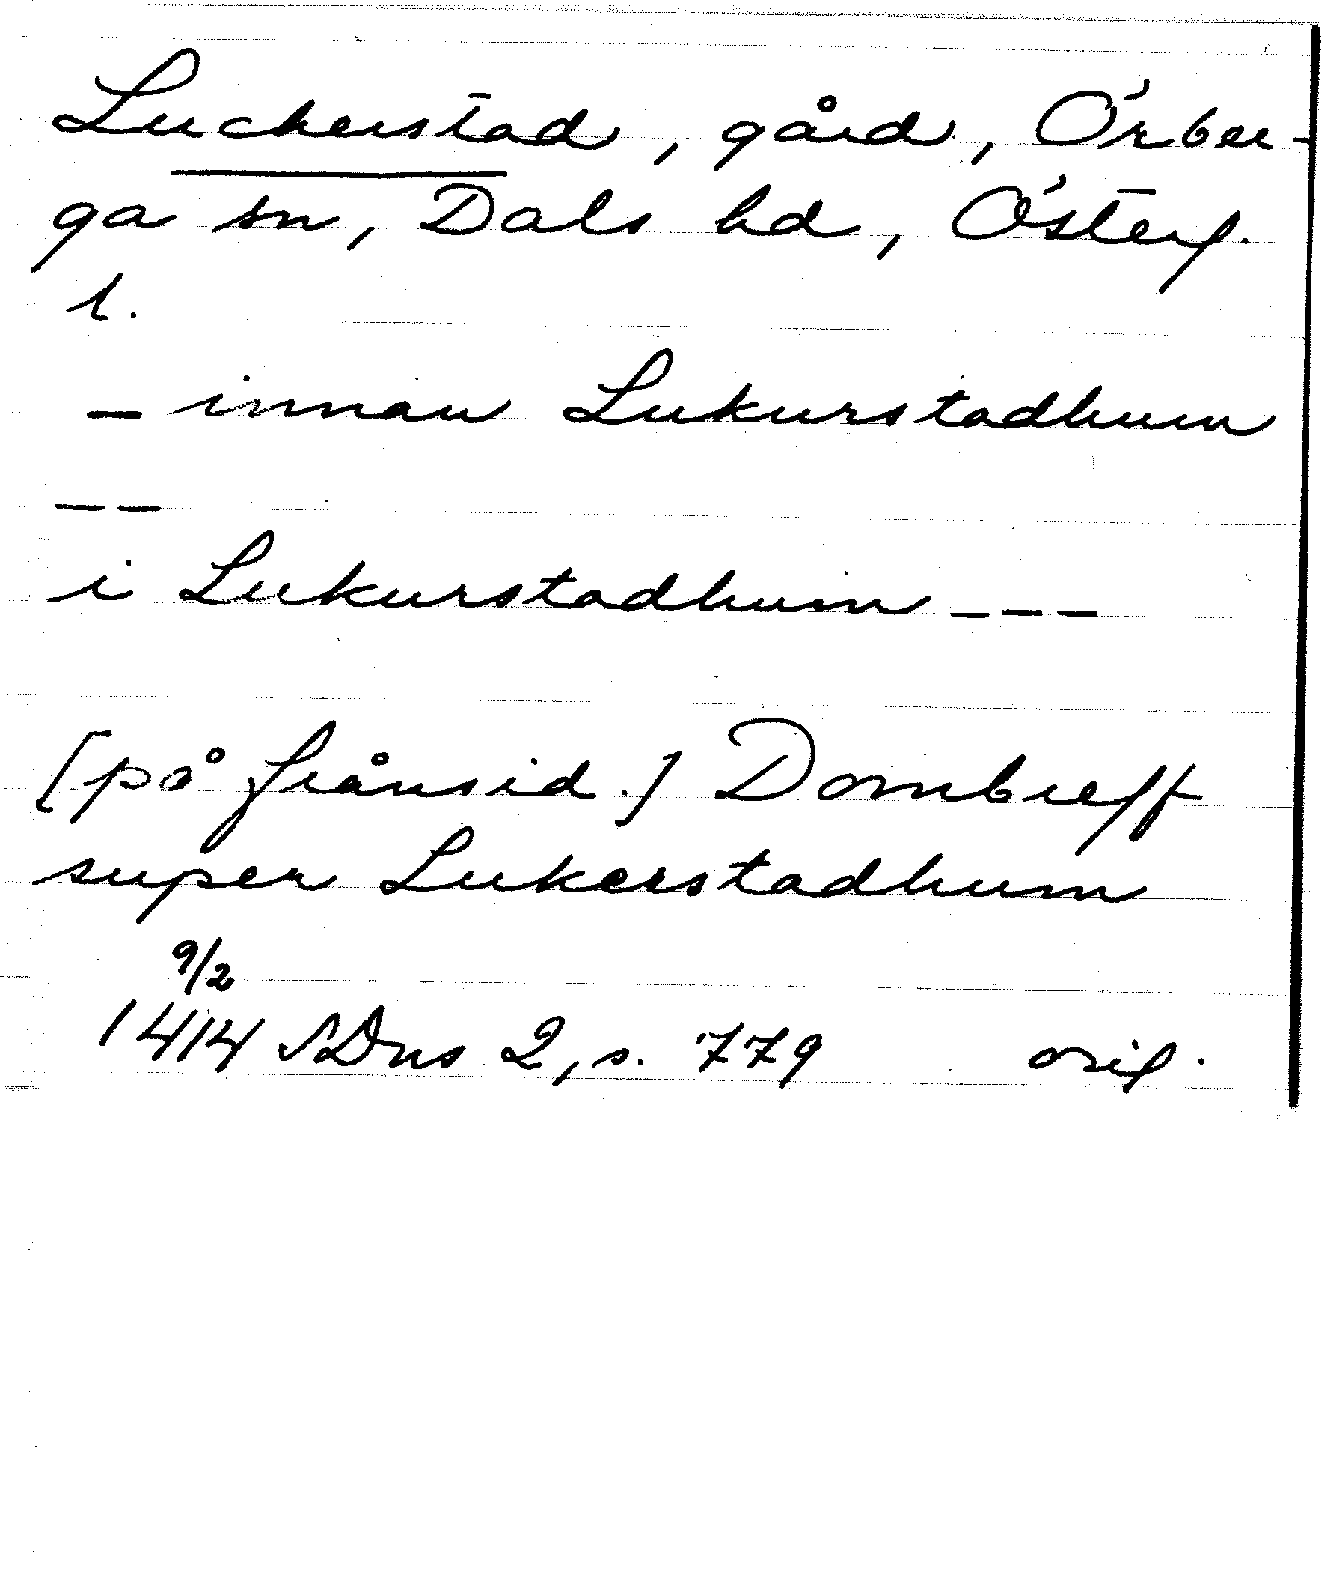 Luckerstad, gård, Örber-
ga sn, Dals hd, Österg.
l.
— innan Lukurstadhum
— —
i Lukurstadhum — — —
[på frånsid.] Dombreff
super Lukerstadhum
9/2
1414 SDns 2, s. 779 orig.